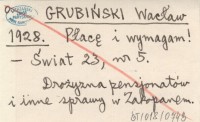 GRUBIŃSKI Wacław
1928. Płacę i wymagam!
– Świat 23, nr 5.
Drożyzna pensjonatów
i inne sprawy w Zakopanem.